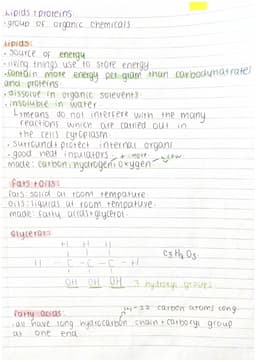 Lipids + proteins
• group of organic chemicals
Lipids:
• source of energy
• living things use to store energy
• contain more energy per gram than carbohydrates
and proteins
• dissolve in organic solevents
• insoluble in water
↳ means do not interfere with the many
reactions which are carried out in
the cells cytoplasm
• surround + protect internal organs
• good heat insulators
made: carbon, hydrogen, oxygen
Fats + oils:
fats: solid at room tempature
oils: liquids at room tempature.
made: fatty acids + glycerol.
Glycerol:
H H H
H - C - C - C - H
C3 H8 O3
OH OH OH 3 hydroxyl groups
14-22 carbon atoms long
Fatty acids:
• all have long hydrocarbon chain + carboxyl group
at one end